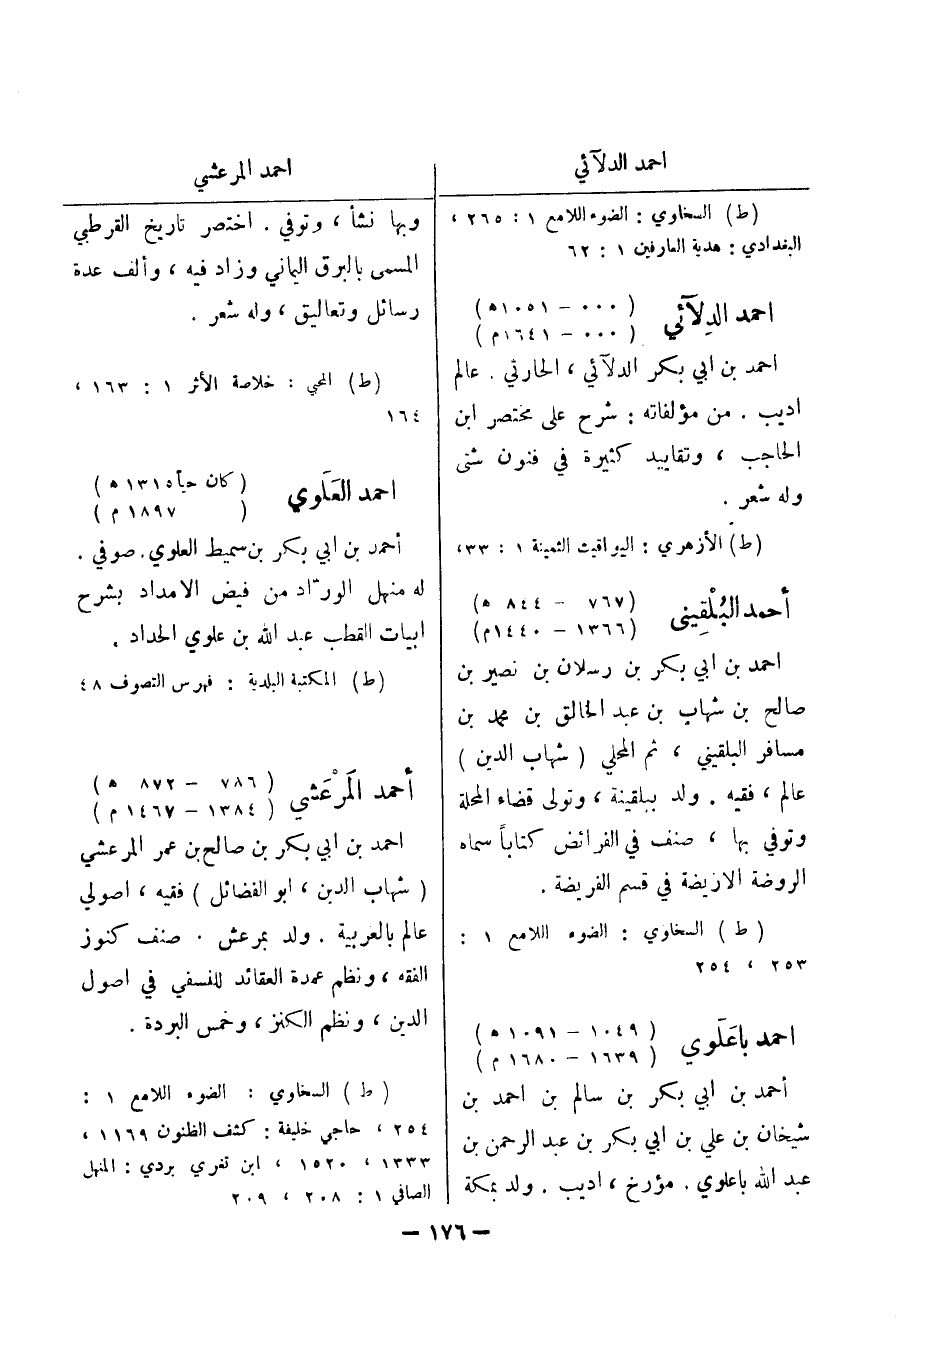 احمد الدلآئي
(ط) السخاوي : الضوء اللامع ١ : ٢٦٥ ،
البغدادي : هدية العارفين ١ : ٦٢
احمد الدِلآئي
( ٠٠٠ – ١٠٥١ ه )
( ٠٠٠ – ١٦٤١ م )
احمد بن ابي بكر الدلآئي ، الحارثي . عالم
اديب . من مؤلفاته : شرح على مختصر ابن
الحاجب ، وتقاييد كثيرة في فنون شتى
وله شعر .
(ط) الأزهري : اليواقيت الثمينة ١ : ٣٣،
أحمد البُلْقِيني
(٧٦٧ – ٨٤٤ ه )
(١٣٦٦ – ١٤٤٠م)
احمد بن ابي بكر بن رسلان بن نصير بن
صالح بن شهاب بن عبد الخالق بن محمد بن
مسافر البلقيني ، ثم المحلي ( شهاب الدين )
عالم ، فقيه . ولد ببلقينة ، وتولى قضاء المحلة
وتوفي بها ، صنف في الفرائض كتاباً سماه
الروضة الاريضة في قسم الفريضة .
( ط ) السخاوي : الضوء اللامع ١ :
٢٥٣ ، ٢٥٤
احمد باعَلَوي
( ١٠٤٩ – ١٠٩١ ه )
( ١٦٣٩ – ١٦٨٠ م )
أحمد بن ابي بكر بن سالم بن احمد بن
شيخان بن علي بن ابي بكر بن عبد الرحمن بن
عبد الله باعلوي . مؤرخ ، اديب . ولد بمكة
احمد المرعشي
وبها نشأ ، وتوفي . اختصر تاريخ القرطبي
المسمى بالبرق اليماني وزاد فيه ، وألف عدة
رسائل وتعاليق ، وله شعر .
(ط) المحبي : خلاصة الأثر ١ : ١٦٣ ،
١٦٤
احمد العَلَوي
( كان حياً ١٣١٥ ه )
( ١٨٩٧ م )
أحمد بن ابي بكر بن سميط العلوي . صوفي .
له منهل الورّاد من فيض الامداد بشرح
ابيات القطب عبد الله بن علوي الحداد .
(ط) المكتبة البلدية : فهرس التصوف ٤٨
أحمد المَرْعَشي
( ٧٨٦ – ٨٧٢ ه )
( ١٣٨٤ – ١٤٦٧ م )
احمد بن ابي بكر بن صالح بن عمر المرعشي
( شهاب الدين ، ابو الفضائل ) فقيه ، اصولي
عالم بالعربية . ولد بمرعش . صنف كنوز
الفقه ، ونظم عمدة العقائد للنسفي في اصول
الدين ، ونظم الكنز ، وخمس البردة .
( ط ) السخاوي : الضوء اللامع ١ :
٢٥٤ ، حاجي خليفة : كشف الظنون ١١٦٩ ،
١٣٣٣ ، ١٥٢٠ ، ابن تغري بردي : المنهل
الصافي ١ : ٢٠٨ ، ٢٠٩
– ١٧٦ –